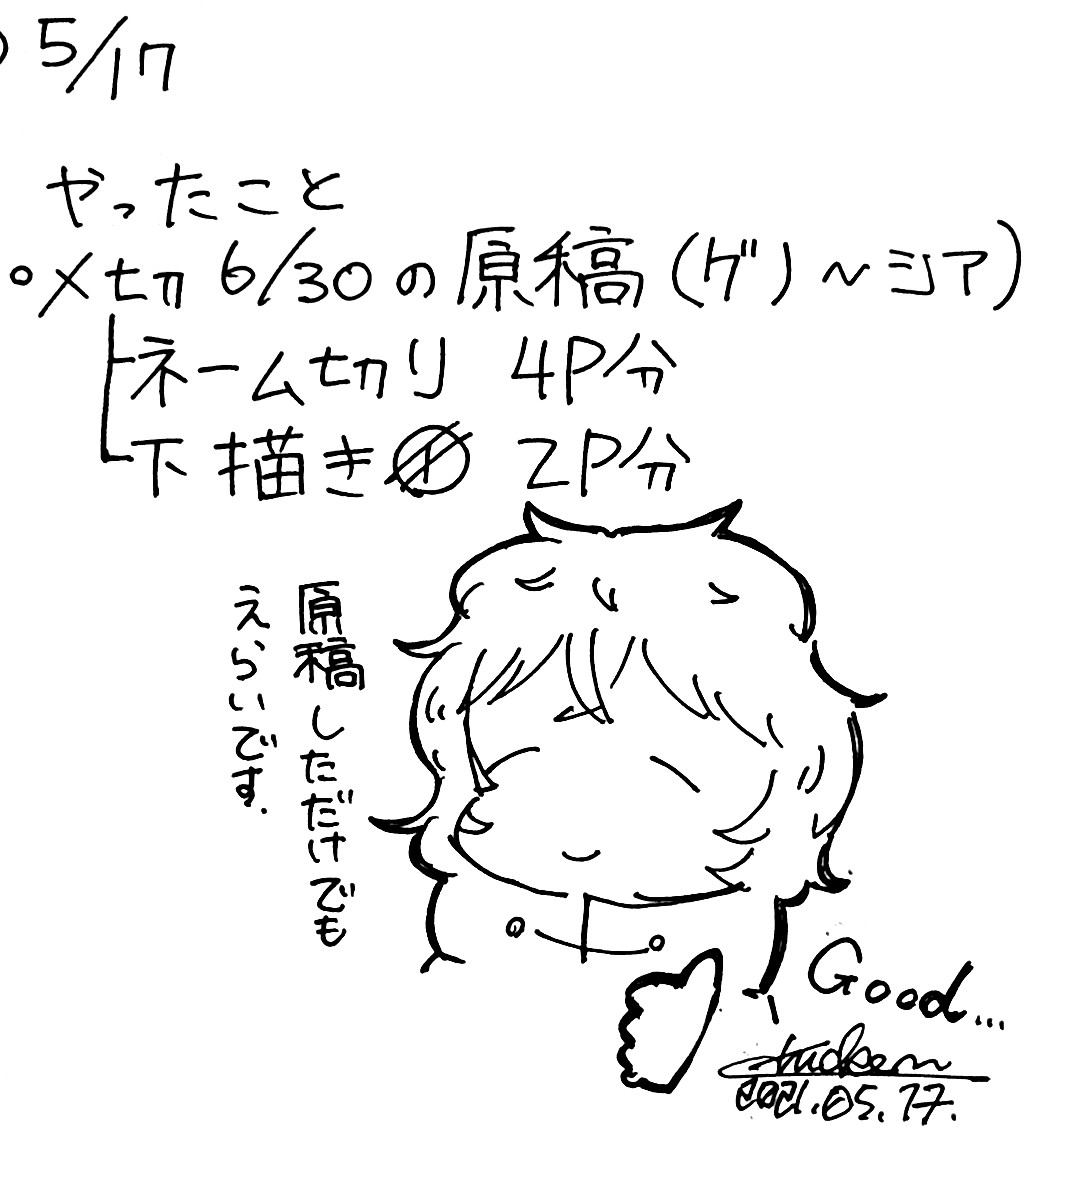 5/17
やったこと
○〆切 6/30の原稿(ゲリ〜シア)
ネーム切り 4P分
下描き 2P分
原稿しただけでも
えらいです.
Good...
2021.05.17.